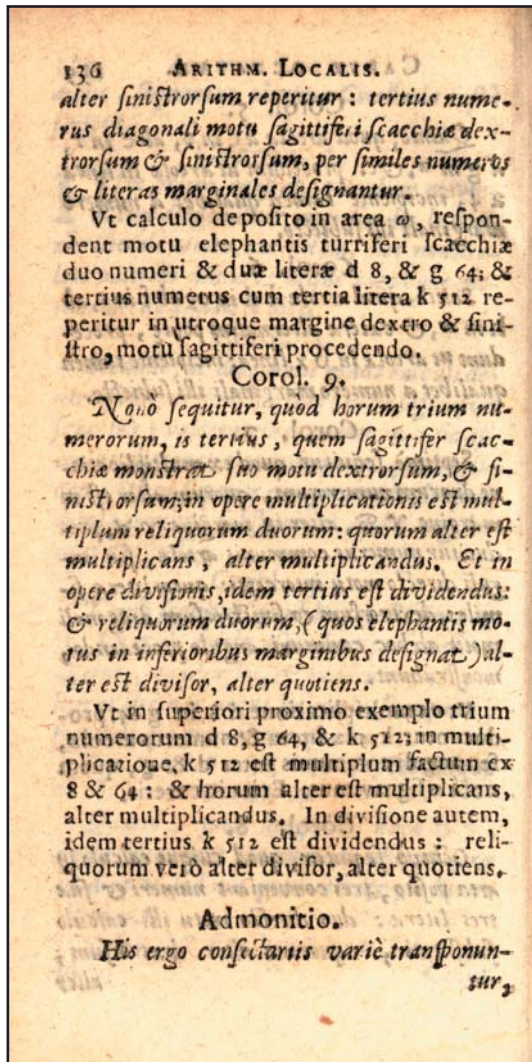 136 ARITHM. LOCALIS.
alter ſiniſtrorſum reperitur: tertius nume-
rus diagonali motu ſagittiferi ſcacchiæ dex-
trorſum & ſiniſtrorſum, per ſimiles numeros
& literas marginales deſignantur.
Vt calculo depoſito in area ω, reſpon-
dent motu elephantis turriferi ſcacchiæ
duo numeri & duæ literæ d 8, & g 64; &
tertius numerus cum tertia litera k 512 re-
peritur in utroque margine dextro & ſini-
ſtro, motu ſagittiferi procedendo.
Corol. 9.
Nonò ſequitur, quòd horum trium nu-
merorum, is tertius, quem ſagittifer ſcac-
chiæ monſtrat ſuo motu dextrorſum, & ſi-
niſtrorſum, in opere multiplicationis eſt mul-
tiplum reliquorum duorum: quorum alter eſt
multiplicans, alter multiplicandus. Et in
opere diviſionis, idem tertius eſt dividendus:
& reliquorum duorum, (quos elephantis mo-
tus in inferioribus marginibus deſignat) al-
ter eſt diviſor, alter quotiens.
Vt in ſuperiori proximo exemplo trium
numerorum d 8, g 64, & k 512; in multi-
plicatione, k 512 eſt multiplum factum ex
8 & 64: & horum alter eſt multiplicans,
alter multiplicandus. In diviſione autem,
idem tertius k 512 eſt dividendus: reli-
quorum verò alter diviſor, alter quotiens.
Admonitio.
His ergo conſectariis variè tranſponun-
tur,